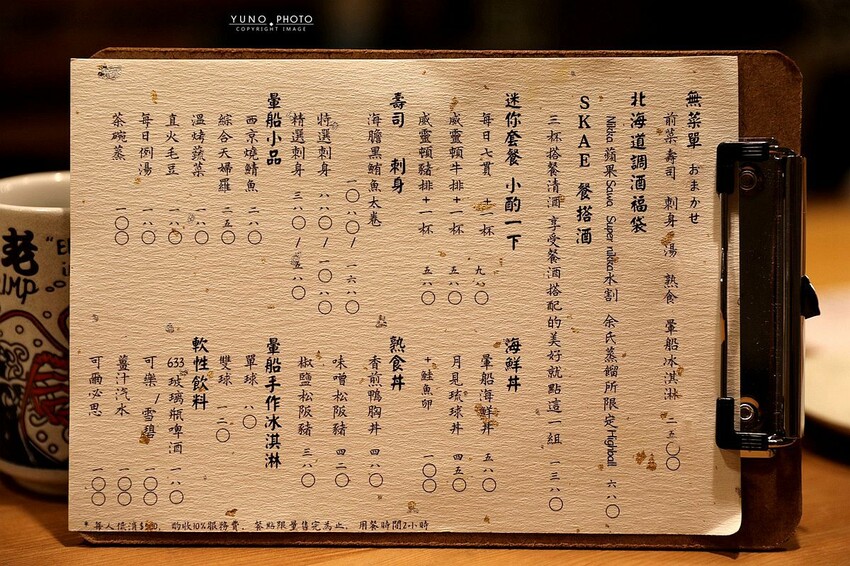 YUNO PHOTO
COPYRIGHT IMAGE
無菜單 おまかせ
前菜 壽司 刺身 湯 熟食 暈船冰淇淋 二五〇〇
北海道調酒福袋
Nikka 蘋果Sawa Super nikka水割 余氏蒸餾所限定Highball 六八〇
SKAE 餐搭酒
三杯搭餐清酒 享受餐酒搭配的美好就點這一組 一三八〇
迷你套餐 小酌一下
每日七貫 +一杯 九八〇
威靈頓牛排+一杯 五八〇
威靈頓豬排+一杯 五八〇
壽司 刺身
海膽黑鮪魚大卷 一〇八〇/一六八〇
特選刺身 八八〇/一〇八〇
精選刺身 三八〇/五八〇
暈船小品
西京燒鯖魚 二八〇
綜合天婦羅 二五〇
溫烤蔬菜 一八〇
直火毛豆 一六八
每日例湯 一八〇
茶碗蒸 一〇〇
海鮮丼
暈船海鮮丼 五八〇
月見琉球丼 四五〇
+鮭魚卵 一〇〇
熟食丼
香煎鴨胸丼 四八〇
味噌松阪豬 四二〇
椒鹽松阪豬 三八〇
暈船手作冰淇淋
單球 八〇
雙球 一二〇
軟性飲料
633玻璃瓶啤酒 一八〇
可樂/雪碧 一〇〇
薑汁汽水 一〇〇
可爾必思 一〇〇
*每人低消$500, 酌收10%服務費, 餐點限量售完為止, 用餐時間2小時
老